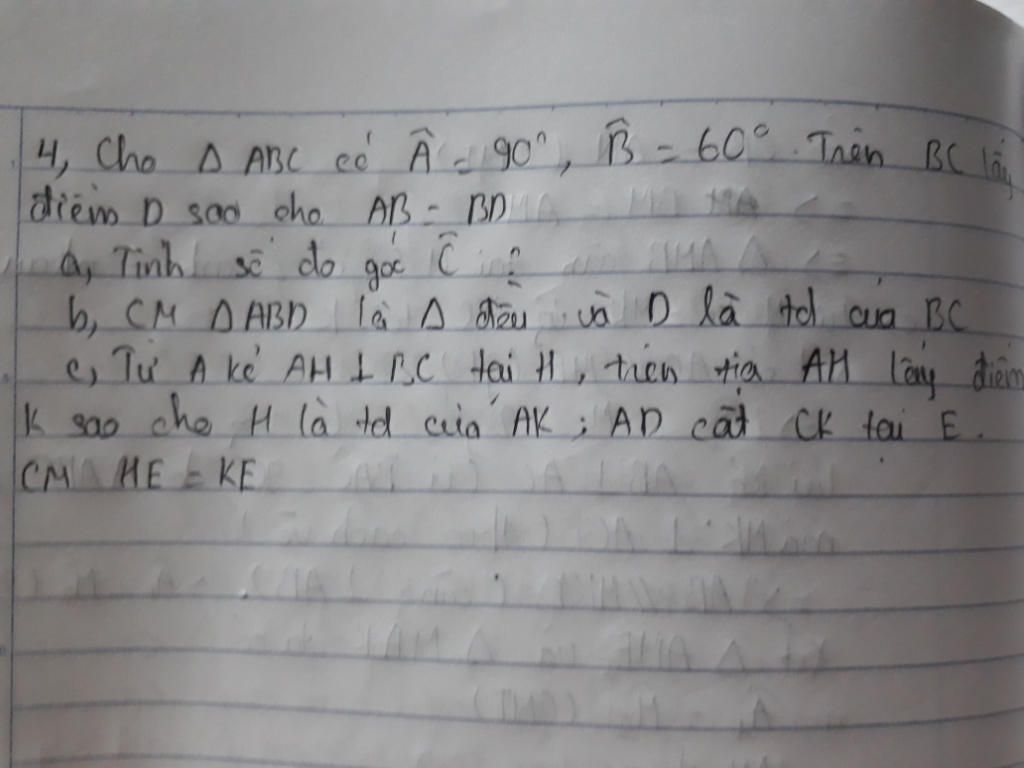 4, Cho Δ ABC có Â = 90°, B̂ = 60°. Trên BC lấy
điểm D sao cho AB = BD
a, Tính số đo góc Ĉ ?
b, CM Δ ABD là Δ đều và D là td của BC
c, Từ A kẻ AH ⊥ BC tại H, trên tia AH lấy điểm
K sao cho H là td của AK ; AD cắt CK tại E.
CM HE = KE